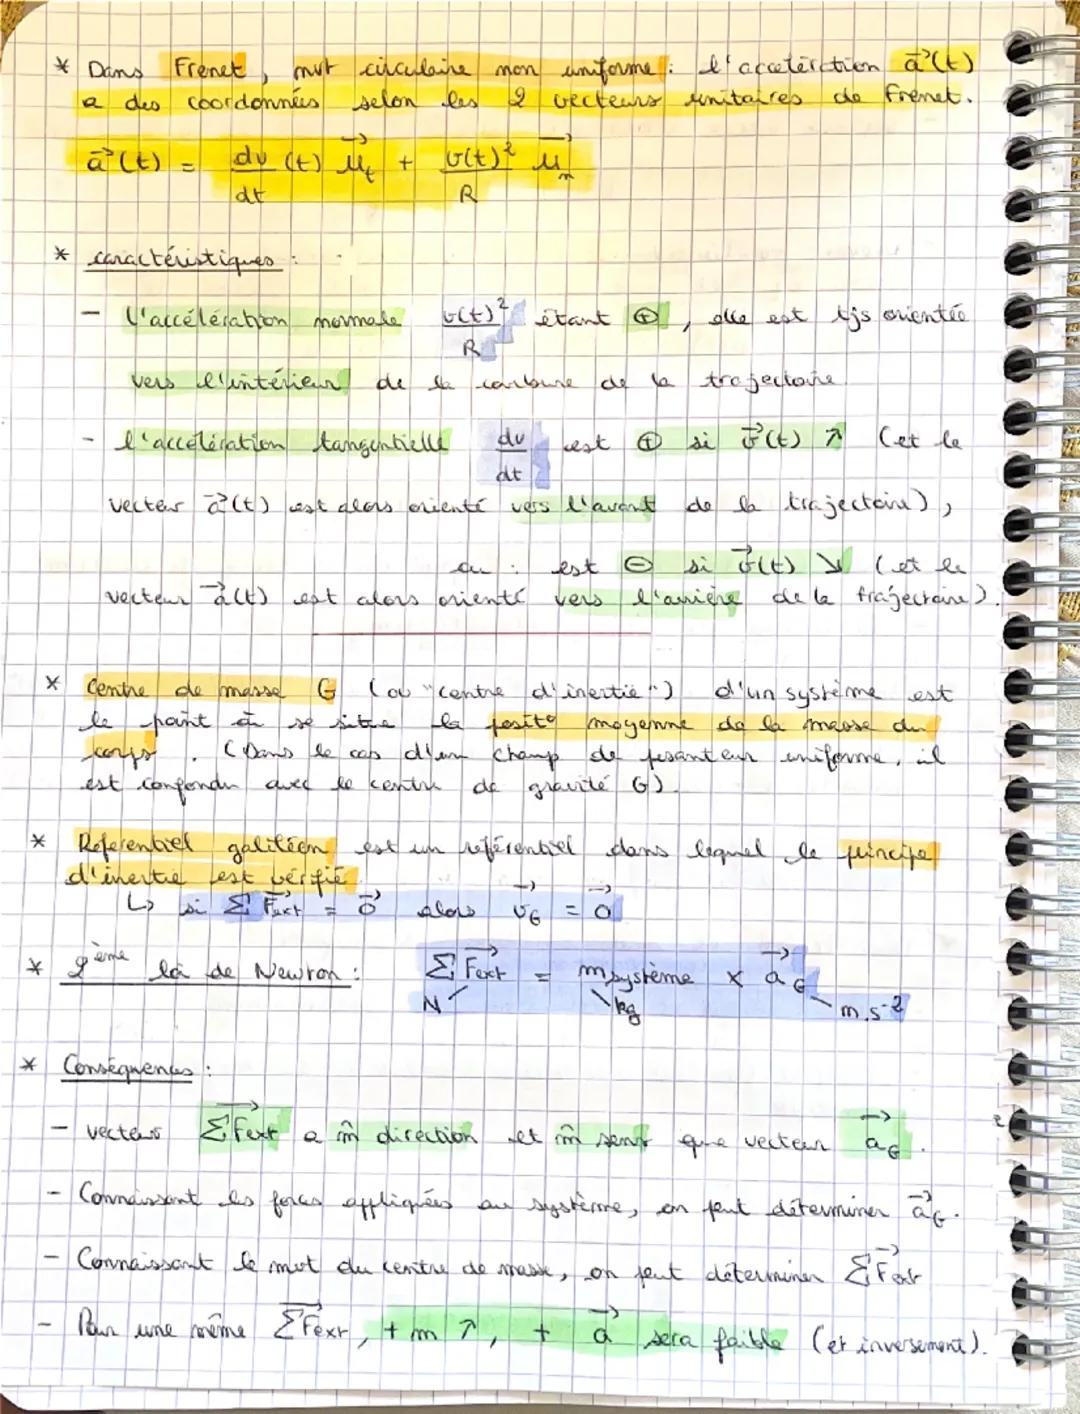 * Dans Frenet, mvt circulaire non uniforme : l'accélération a⃗(t)
a des coordonnées selon les 2 vecteurs unitaires de Frenet.
a⃗(t) = dv/dt (t) u⃗t + v(t)²/R u⃗n
* caractéristiques :
- l'accélération normale v(t)²/R étant ⊕, elle est tjs orientée
vers l'intérieur de la courbure de la trajectoire
- l'accélération tangentielle dv/dt est ⊕ si v⃗(t) ↗ (et le
vecteur a⃗(t) est alors orienté vers l'avant de la trajectoire),
ou : est ⊖ si v⃗(t) ↘ (et le
vecteur a⃗(t) est alors orienté vers l'arrière de la trajectoire).
* Centre de masse G (ou "centre d'inertie") d'un système est
le point où se situe la posit° moyenne de la masse du
corps. (Dans le cas d'un champ de pesanteur uniforme, il
est confondu avec le centre de gravité G).
* Référentiel galiléen est un référentiel dans lequel le principe
d'inertie est vérifié.
↳ si Σ F⃗ext = 0⃗ alors v⃗G = 0⃗
* 2ème loi de Newton : Σ F⃗ext = m système × a⃗G
N kg m.s⁻²
* Conséquences :
- vecteur ΣF⃗ext a m̂ direction et m̂ sens que vecteur a⃗G.
- Connaissant les forces appliquées au système, on peut déterminer a⃗G.
- Connaissant le mvt du centre de masse, on peut déterminer ΣF⃗ext
- Pour une même ΣF⃗ext, + m ↗, + a⃗ sera faible (et inversement).